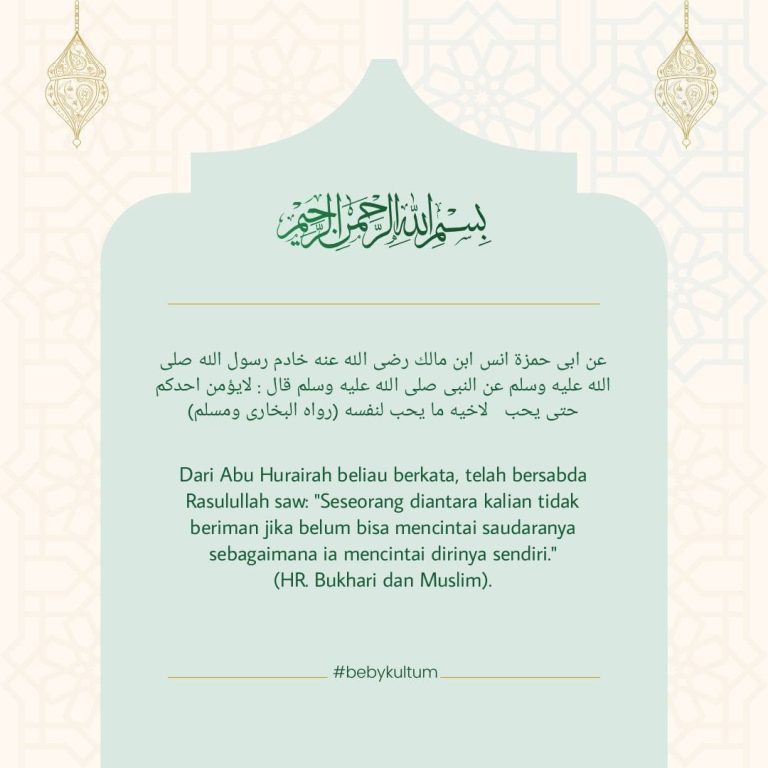 بِسْمِ اللهِ الرَّحْمَنِ الرَّحِيْمِ
عن ابى حمزة انس ابن مالك رضى الله عنه خادم رسول الله صلى
الله عليه وسلم عن النبى صلى الله عليه وسلم قال : لايؤمن احدكم
حتى يحب لاخيه ما يحب لنفسه (رواه البخارى ومسلم)
Dari Abu Hurairah beliau berkata, telah bersabda
Rasulullah saw: "Seseorang diantara kalian tidak
beriman jika belum bisa mencintai saudaranya
sebagaimana ia mencintai dirinya sendiri."
(HR. Bukhari dan Muslim).
#bebykultum